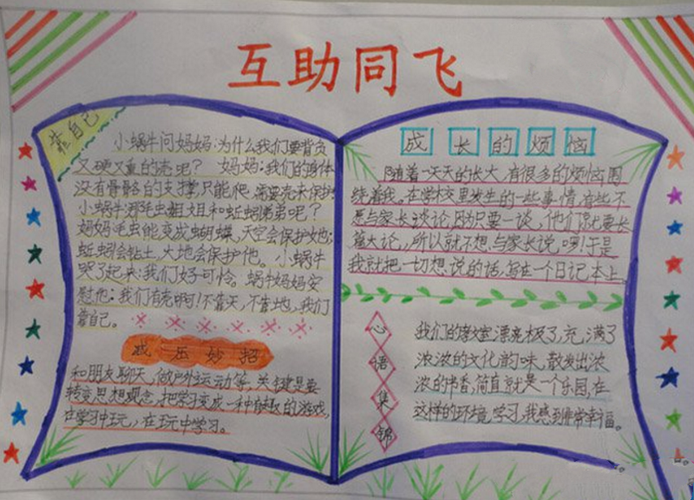 互助同飞
靠自己
小蜗牛问妈妈:为什么我们要背负
又硬又重的壳呢? 妈妈:我们的身体
没有骨骼的支撑,只能爬,需要壳来保护
小蜗牛:那毛虫姐姐和蚯蚓弟弟呢?
妈妈毛虫能变成蝴蝶,天空会保护她;
蚯蚓会钻土,大地会保护他。小蜗牛
哭了起来:我们好可怜。蜗牛妈妈安
慰他:我们有壳啊!不靠天,不靠地,我们
靠自己。
减压妙招
和朋友聊天,做户外运动等,关键是要
转变思想观念,把学习变成一种有趣的游戏,
在学习中玩,在玩中学习。
成长的烦恼
随着一天天的长大,有很多的烦恼围
绕着我。在学校里发生的一些事情,有些不
想与家长谈论,因为只要一谈,他们就要长
篇大论,所以就不想与家长说。嗯!于是
我就把一切想说的话,写在一个日记本上。
心语集锦
我们的教室漂亮极了,充满了
浓浓的文化韵味,散发出浓
浓的书香,简直就是一个乐园,在
这样的环境学习,我感到非常幸福。